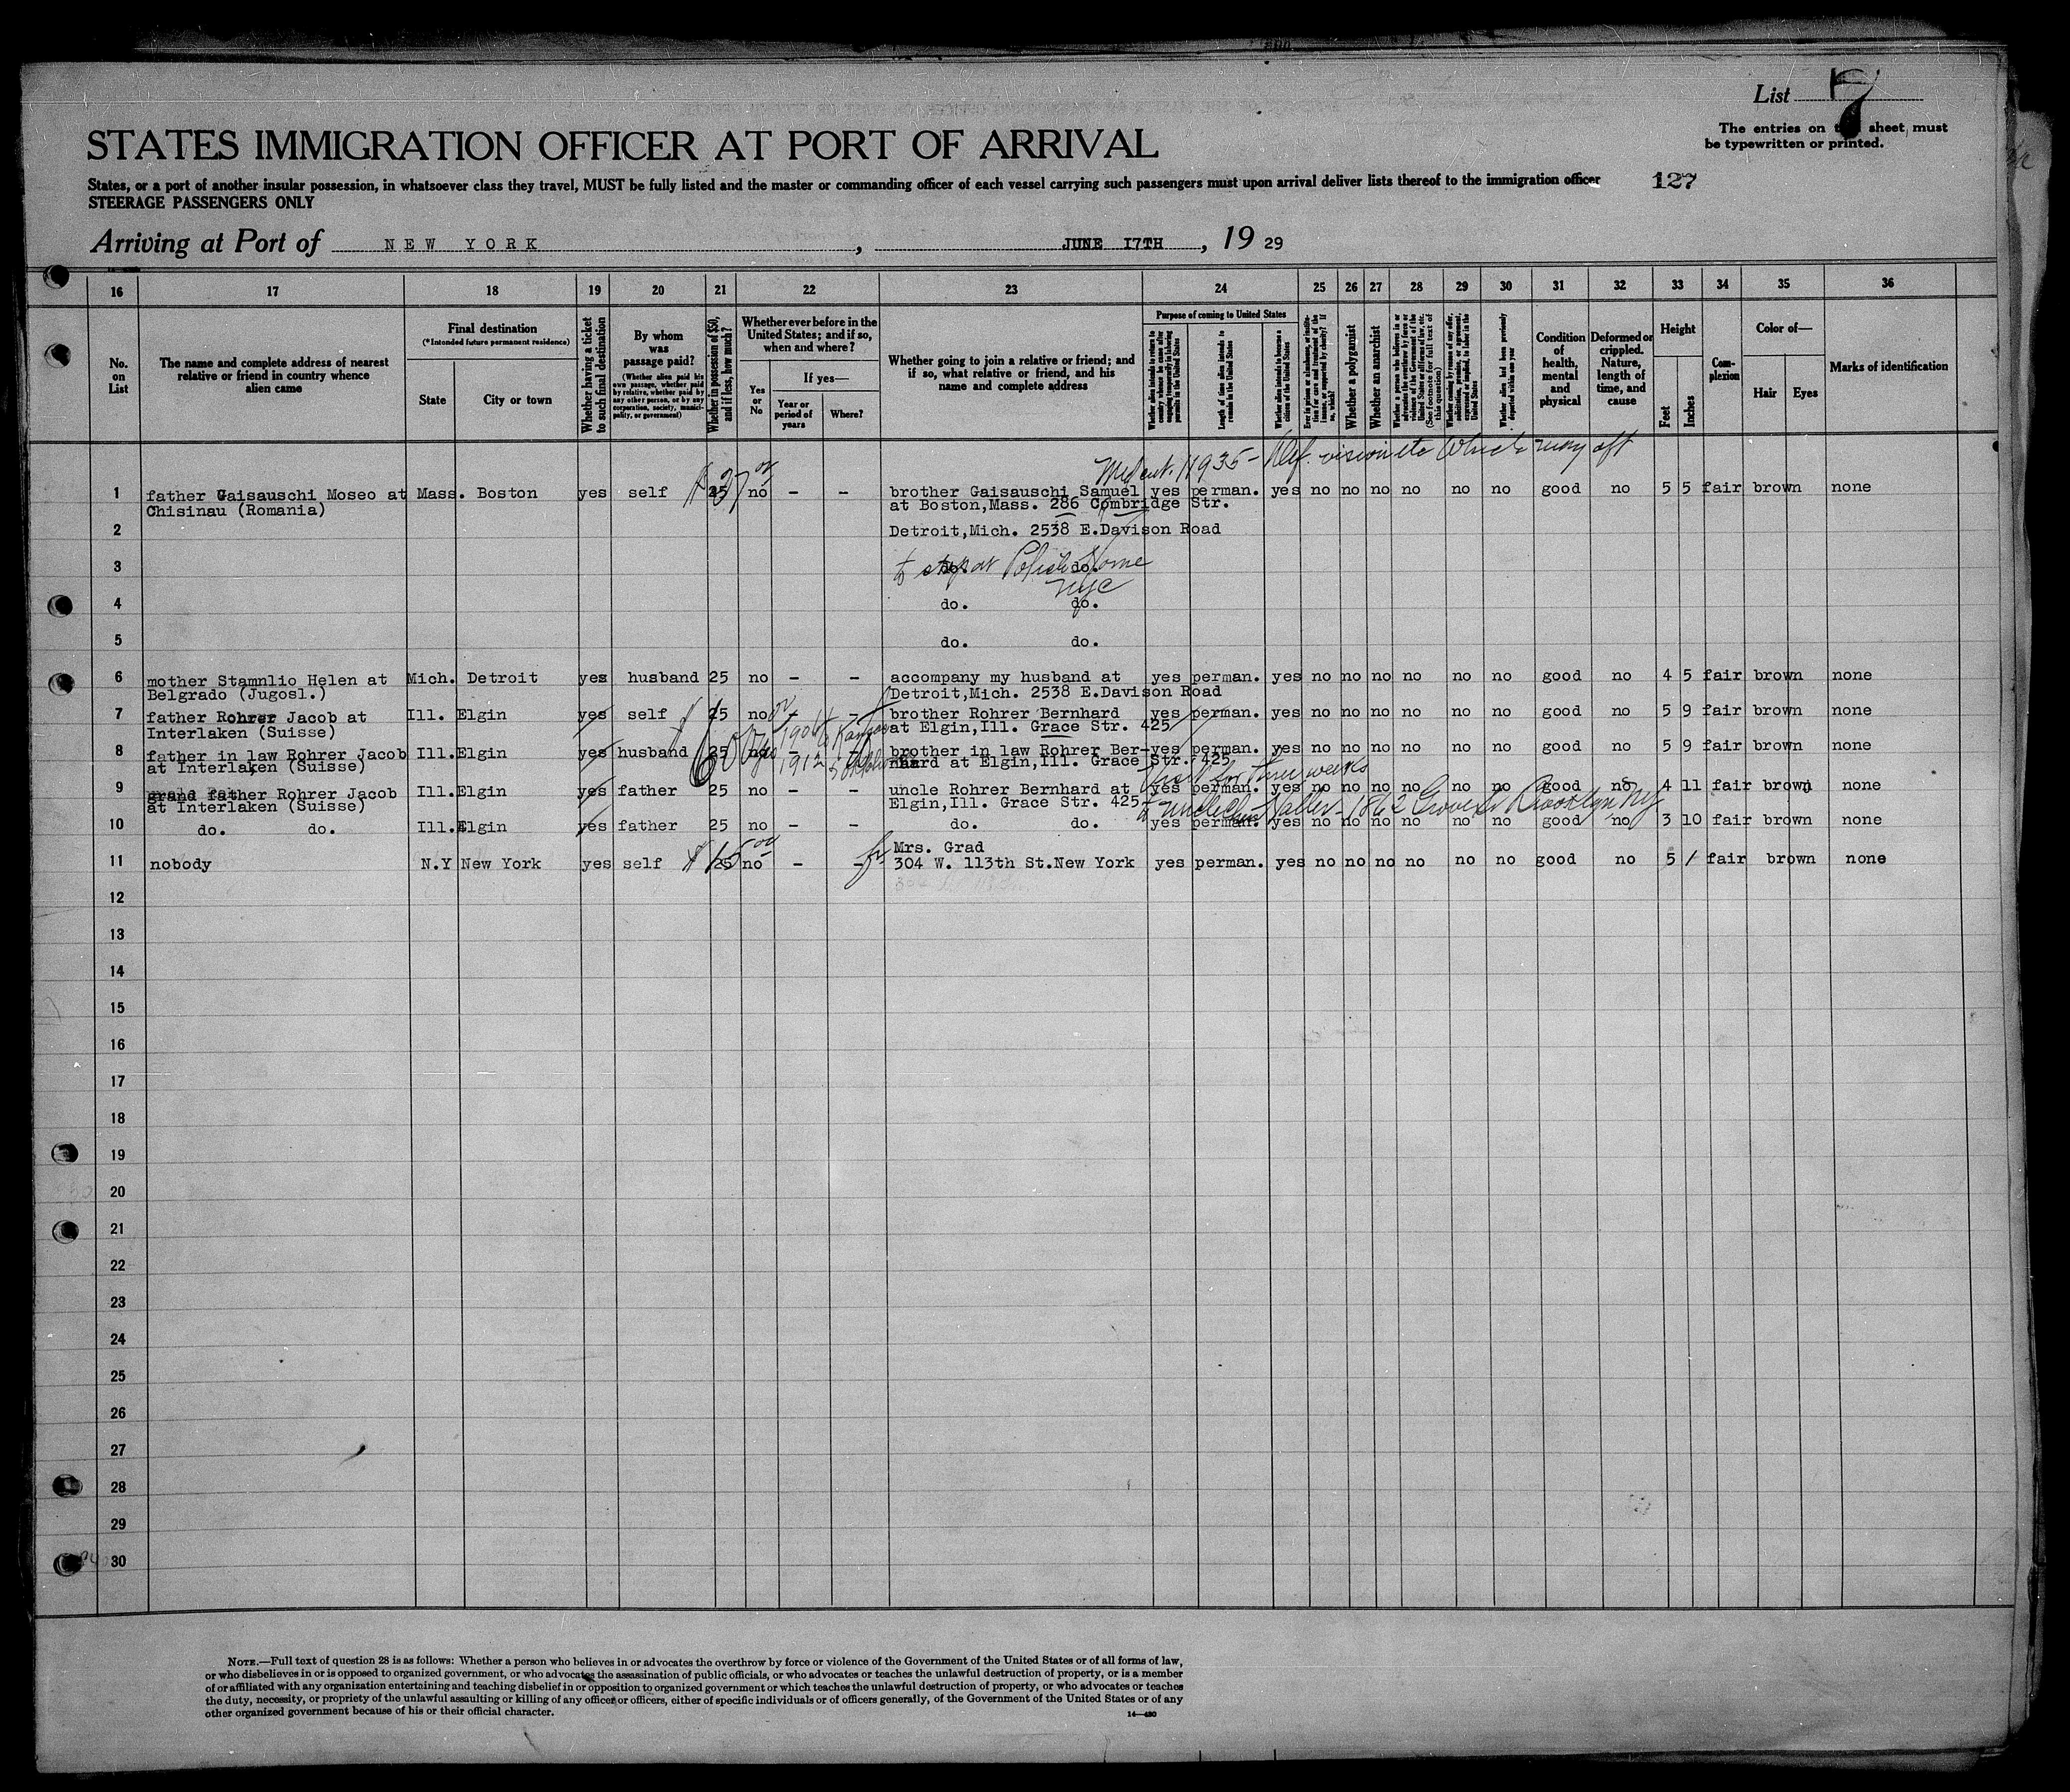 List 7
The entries on this sheet must
be typewritten or printed.
STATES IMMIGRATION OFFICER AT PORT OF ARRIVAL
States, or a port of another insular possession, in whatsoever class they travel, MUST be fully listed and the master or commanding officer of each vessel carrying such passengers must upon arrival deliver lists thereof to the immigration officer 127
STEERAGE PASSENGERS ONLY
Arriving at Port of NEW YORK, JUNE 17TH, 19 29
16 17 18 19 20 21 22 23 24 25 26 27 28 29 30 31 32 33 34 35 36
No. on List
The name and complete address of nearest relative or friend in country whence alien came
Final destination
(*Intended future permanent residence)
State
City or town
Whether having a ticket to such final destination
By whom was passage paid?
(Whether alien paid his own passage, whether paid by relative, whether paid by any other person, or by any corporation, society, municipality, or government)
Whether in possession of $50, and if less, how much?
Whether ever before in the United States; and if so, when and where?
Yes or No
If yes—
Year or period of years
Where?
Whether going to join a relative or friend; and if so, what relative or friend, and his name and complete address
Purpose of coming to United States
Length of time alien intends to remain in the United States
Whether alien intends to become a citizen of the United States
Whether a polygamist
Whether an anarchist
Whether alien had been previously deported within one year
Condition of health, mental and physical
Deformed or crippled. Nature, length of time, and cause
Height
Feet
Inches
Complexion
Color of—
Hair
Eyes
Marks of identification
Med cert. 11935 - Def. vision etc which may aff
1 father Gaisauschi Moseo at Mass. Boston yes self 25 $37 00 no - - brother Gaisauschi Samuel yes perman. yes no no no no no no good no 5 5 fair brown none
Chisinau (Romania) at Boston,Mass. 286 Combridge Str.
2 Detroit,Mich. 2538 E.Davison Road
3 do. do.
to stop at Polish Home
NYC
4 do. do.
5 do. do.
6 mother Stamnlio Helen at Mich. Detroit yes husband 25 no - - accompany my husband at yes perman. yes no no no no no no good no 4 5 fair brown none
Belgrado (Jugosl.) Detroit,Mich. 2538 E.Davison Road
7 father Rohrer Jacob at Ill. Elgin yes self 25 no - - brother Rohrer Bernhard yes perman. yes no no no no no no good no 5 9 fair brown none
Interlaken (Suisse) at Elgin,Ill. Grace Str. 425
$600 yes 1904 1912 Kansas
8 father in law Rohrer Jacob Ill. Elgin yes husband 25 no - - brother in law Rohrer Ber- yes perman. yes no no no no no no good no 5 9 fair brown none
at Interlaken (Suisse) nhard at Elgin,Ill. Grace Str. 425
Visit for three weeks
9 grand father Rohrer Jacob Ill. Elgin yes father 25 no - - uncle Rohrer Bernhard at yes perman. yes no no no no no no good no 4 11 fair brown none
at Interlaken (Suisse) Elgin,Ill. Grace Str. 425
to uncle Saller - 1862 Grove St Brooklyn NY
10 do. do. Ill. Elgin yes father 25 no - - do. do. yes perman. yes no no no no no no good no 3 10 fair brown none
Mrs. Grad
11 nobody N.Y New York yes self 25 $15 00 no - - fr 304 W. 113th St.New York yes perman. yes no no no no no no good no 5 1 fair brown none
12
13
14
15
16
17
18
19
20
21
22
23
24
25
26
27
28
29
30
NOTE.—Full text of question 28 is as follows: Whether a person who believes in or advocates the overthrow by force or violence of the Government of the United States or of all forms of law,
or who disbelieves in or is opposed to organized government, or who advocates the assassination of public officials, or who advocates or teaches the unlawful destruction of property, or is a member
of or affiliated with any organization entertaining and teaching disbelief in or opposition to organized government or which teaches the unlawful destruction of property, or who advocates or teaches
the duty, necessity, or propriety of the unlawful assaulting or killing of any officer or officers, either of specific individuals or of officers generally, of the Government of the United States or of any
other organized government because of his or their official character.
14—430